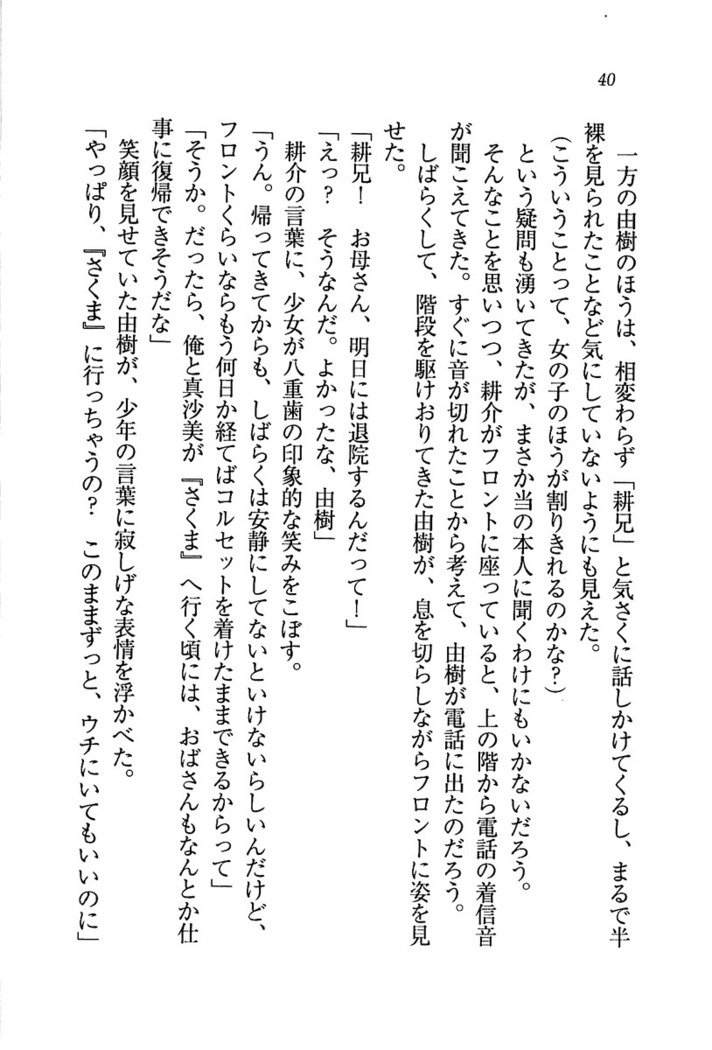 40
一方の由樹のほうは、相変わらず「耕兄」と気さくに話しかけてくるし、まるで半
裸を見られたことなど気にしていないようにも見えた。
(こういうことって、女の子のほうが割りきれるのかな?)
という疑問も湧いてきたが、まさか当の本人に聞くわけにもいかないだろう。
そんなことを思いつつ、耕介がフロントに座っていると、上の階から電話の着信音
が聞こえてきた。すぐに音が切れたことから考えて、由樹が電話に出たのだろう。
しばらくして、階段を駆けおりてきた由樹が、息を切らしながらフロントに姿を見
せた。
「耕兄! お母さん、明日には退院するんだって!」
「えっ? そうなんだ。よかったな、由樹」
耕介の言葉に、少女が八重歯の印象的な笑みをこぼす。
「うん。帰ってきてからも、しばらくは安静にしてないといけないらしいんだけど、
フロントくらいならもう何日か経てばコルセットを着けたままできるからって」
「そうか。だったら、俺と真沙美が『さくま』へ行く頃には、おばさんもなんとか仕
事に復帰できそうだな」
笑顔を見せていた由樹が、少年の言葉に寂しげな表情を浮かべた。
「やっぱり、『さくま』に行っちゃうの? このままずっと、ウチにいてもいいのに」